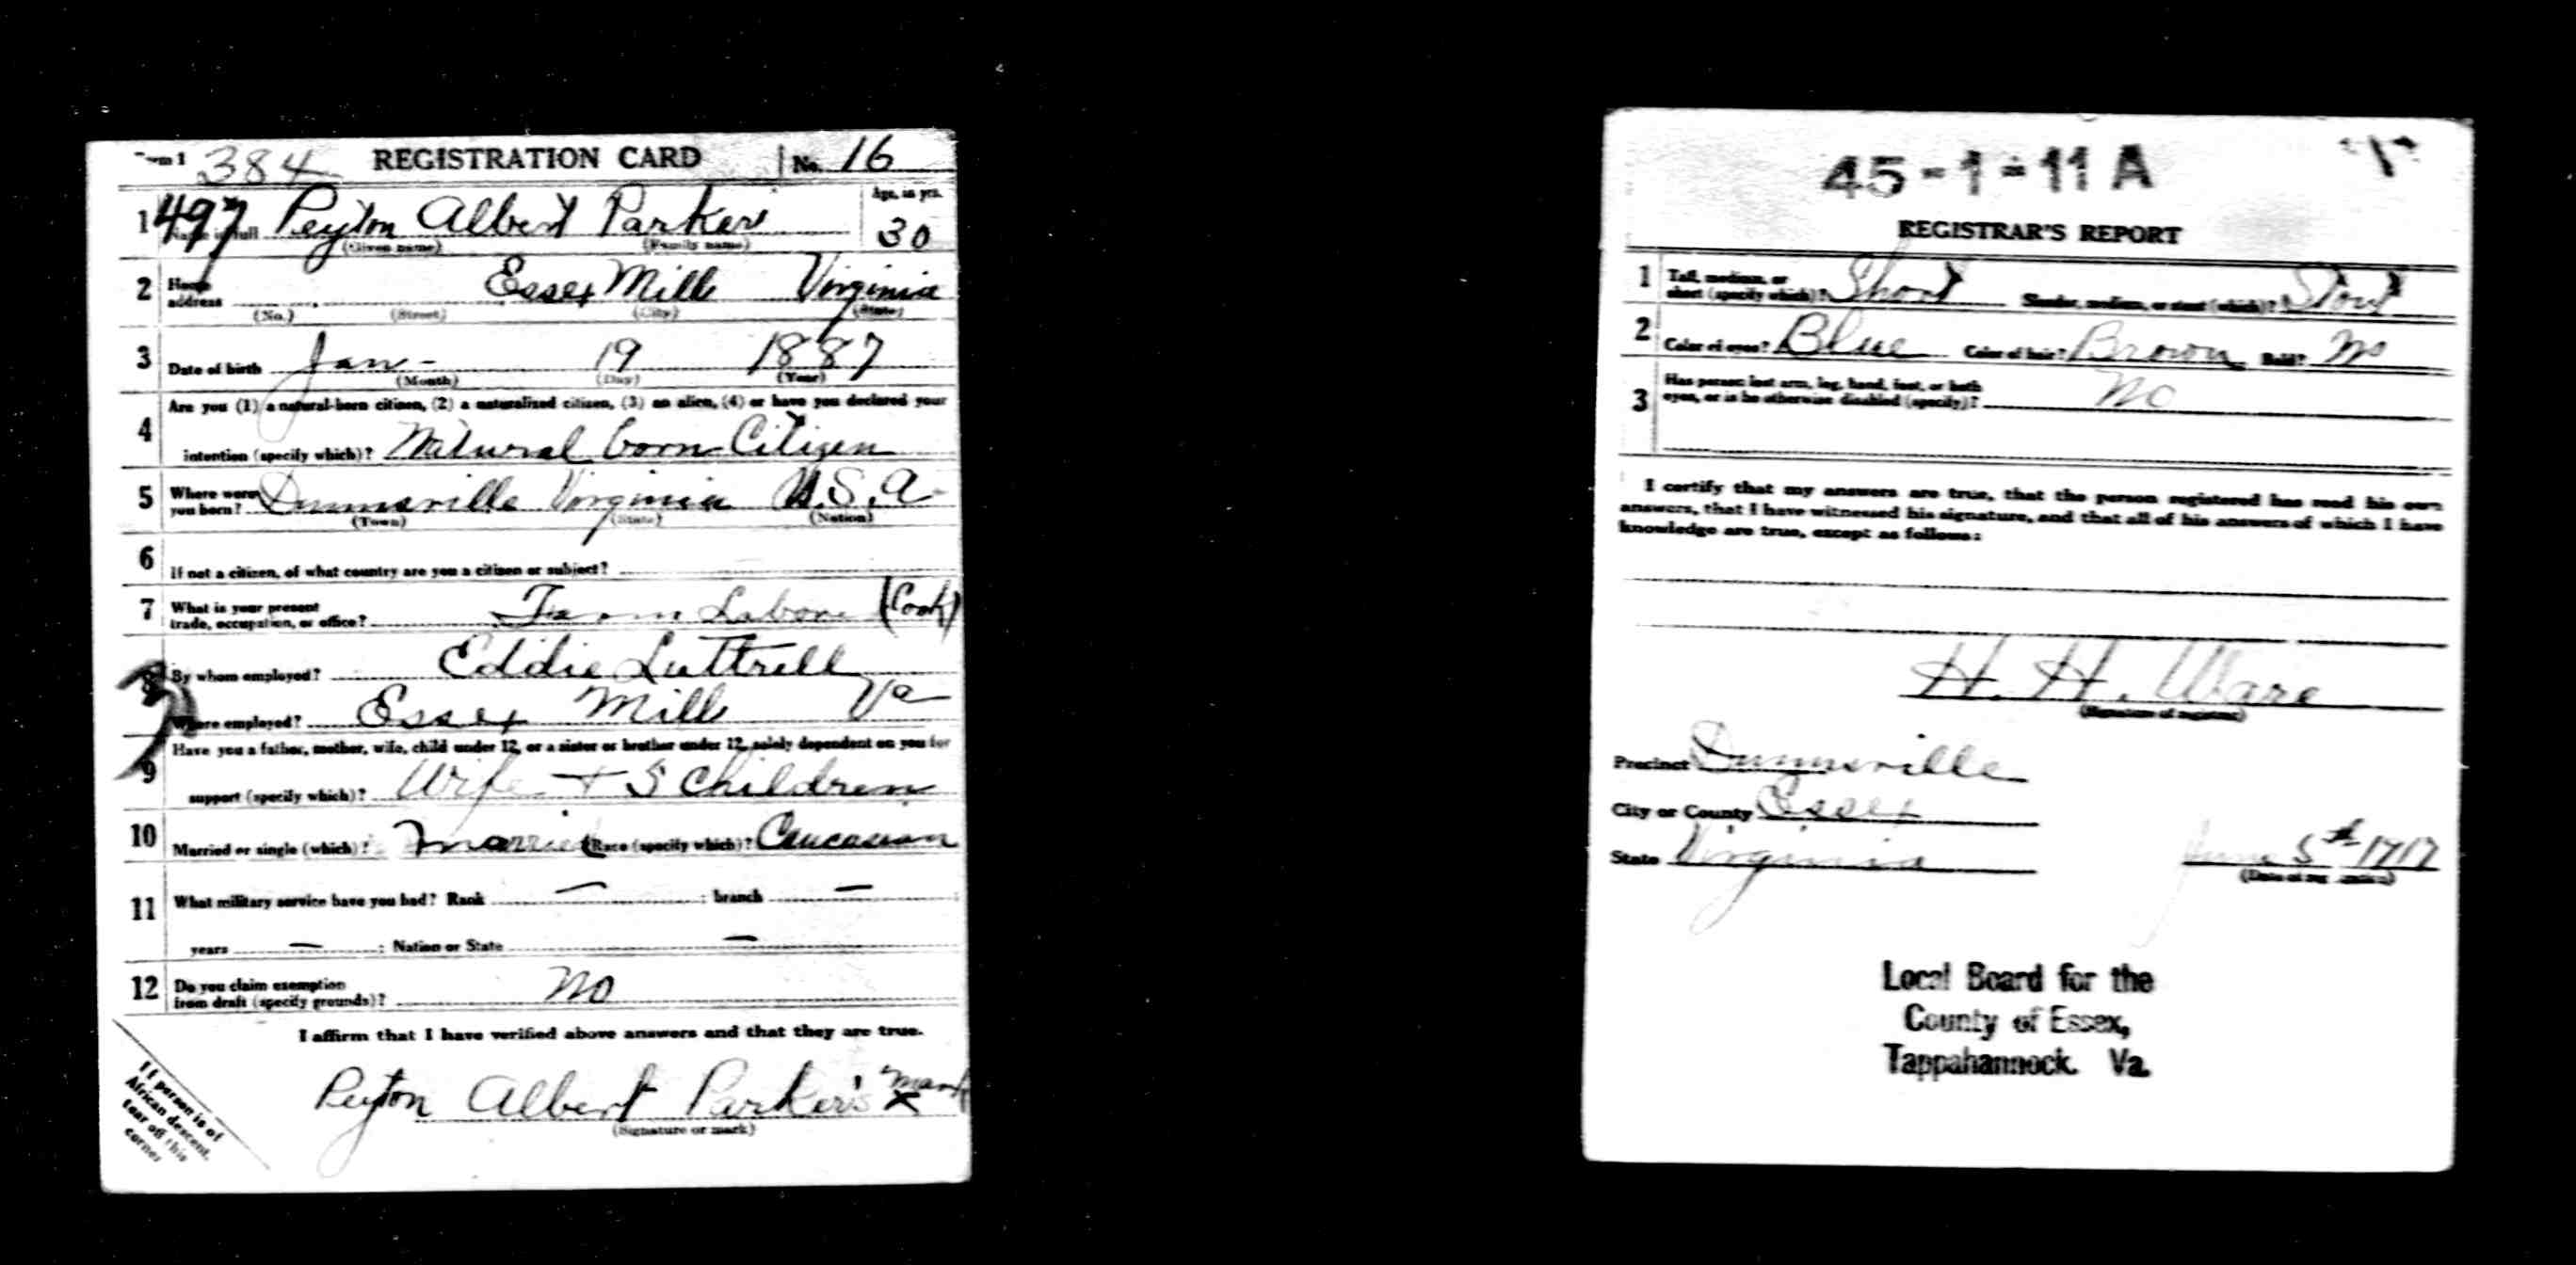 384 REGISTRATION CARD No. 16
1 497 Name in full Peyton Albert Parker Age, in yrs.
(Given name) (Family name) 30
2 Home address Essex Mill Virginia
(No.) (Street) (City) (State)
3 Date of birth Jan - 19 1887
(Month) (Day) (Year)
Are you (1) a natural-born citizen, (2) a naturalized citizen, (3) an alien, (4) or have you declared your
4 intention (specify which)? Natural born Citizen
5 Where were you born? Dunnsville Virginia U.S.A
(Town) (State) (Nation)
6 If not a citizen, of what country are you a citizen or subject?
7 What is your present
trade, occupation, or office? Farm Labor (Cook)
8 By whom employed? Eddie Luttrell
Where employed? Essex Mill Va
Have you a father, mother, wife, child under 12, or a sister or brother under 12, solely dependent on you for
9 support (specify which)? Wife + 5 Children
10 Married or single (which)? Married Race (specify which)? Caucasian
11 What military service have you had? Rank — ; branch —
years — ; Nation or State —
12 Do you claim exemption
from draft (specify grounds)? No
I affirm that I have verified above answers and that they are true.
Peyton Albert Parker's X mark
(Signature or mark)
If person is of
African descent,
tear off this
corner
45-1-11 A
REGISTRAR'S REPORT
1 Tall, medium, or
short (specify which)? Short Slender, medium, or stout (which)? Stout
2 Color of eyes? Blue Color of hair? Brown Bald? No
3 Has person lost arm, leg, hand, foot, or both
eyes, or is he otherwise disabled (specify)? No
I certify that my answers are true, that the person registered has read his own
answers, that I have witnessed his signature, and that all of his answers of which I have
knowledge are true, except as follows:
H. H. Ware
(Signature of registrar)
Precinct Dunnsville
City or County Essex
State Virginia June 5th 1917
(Date of registration)
Local Board for the
County of Essex,
Tappahannock. Va.